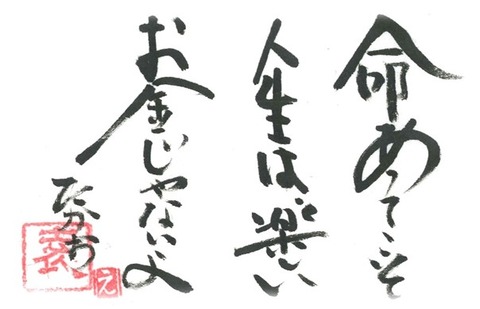 命あってこそ
人生は楽しい
お金じゃないよ
たかお
え